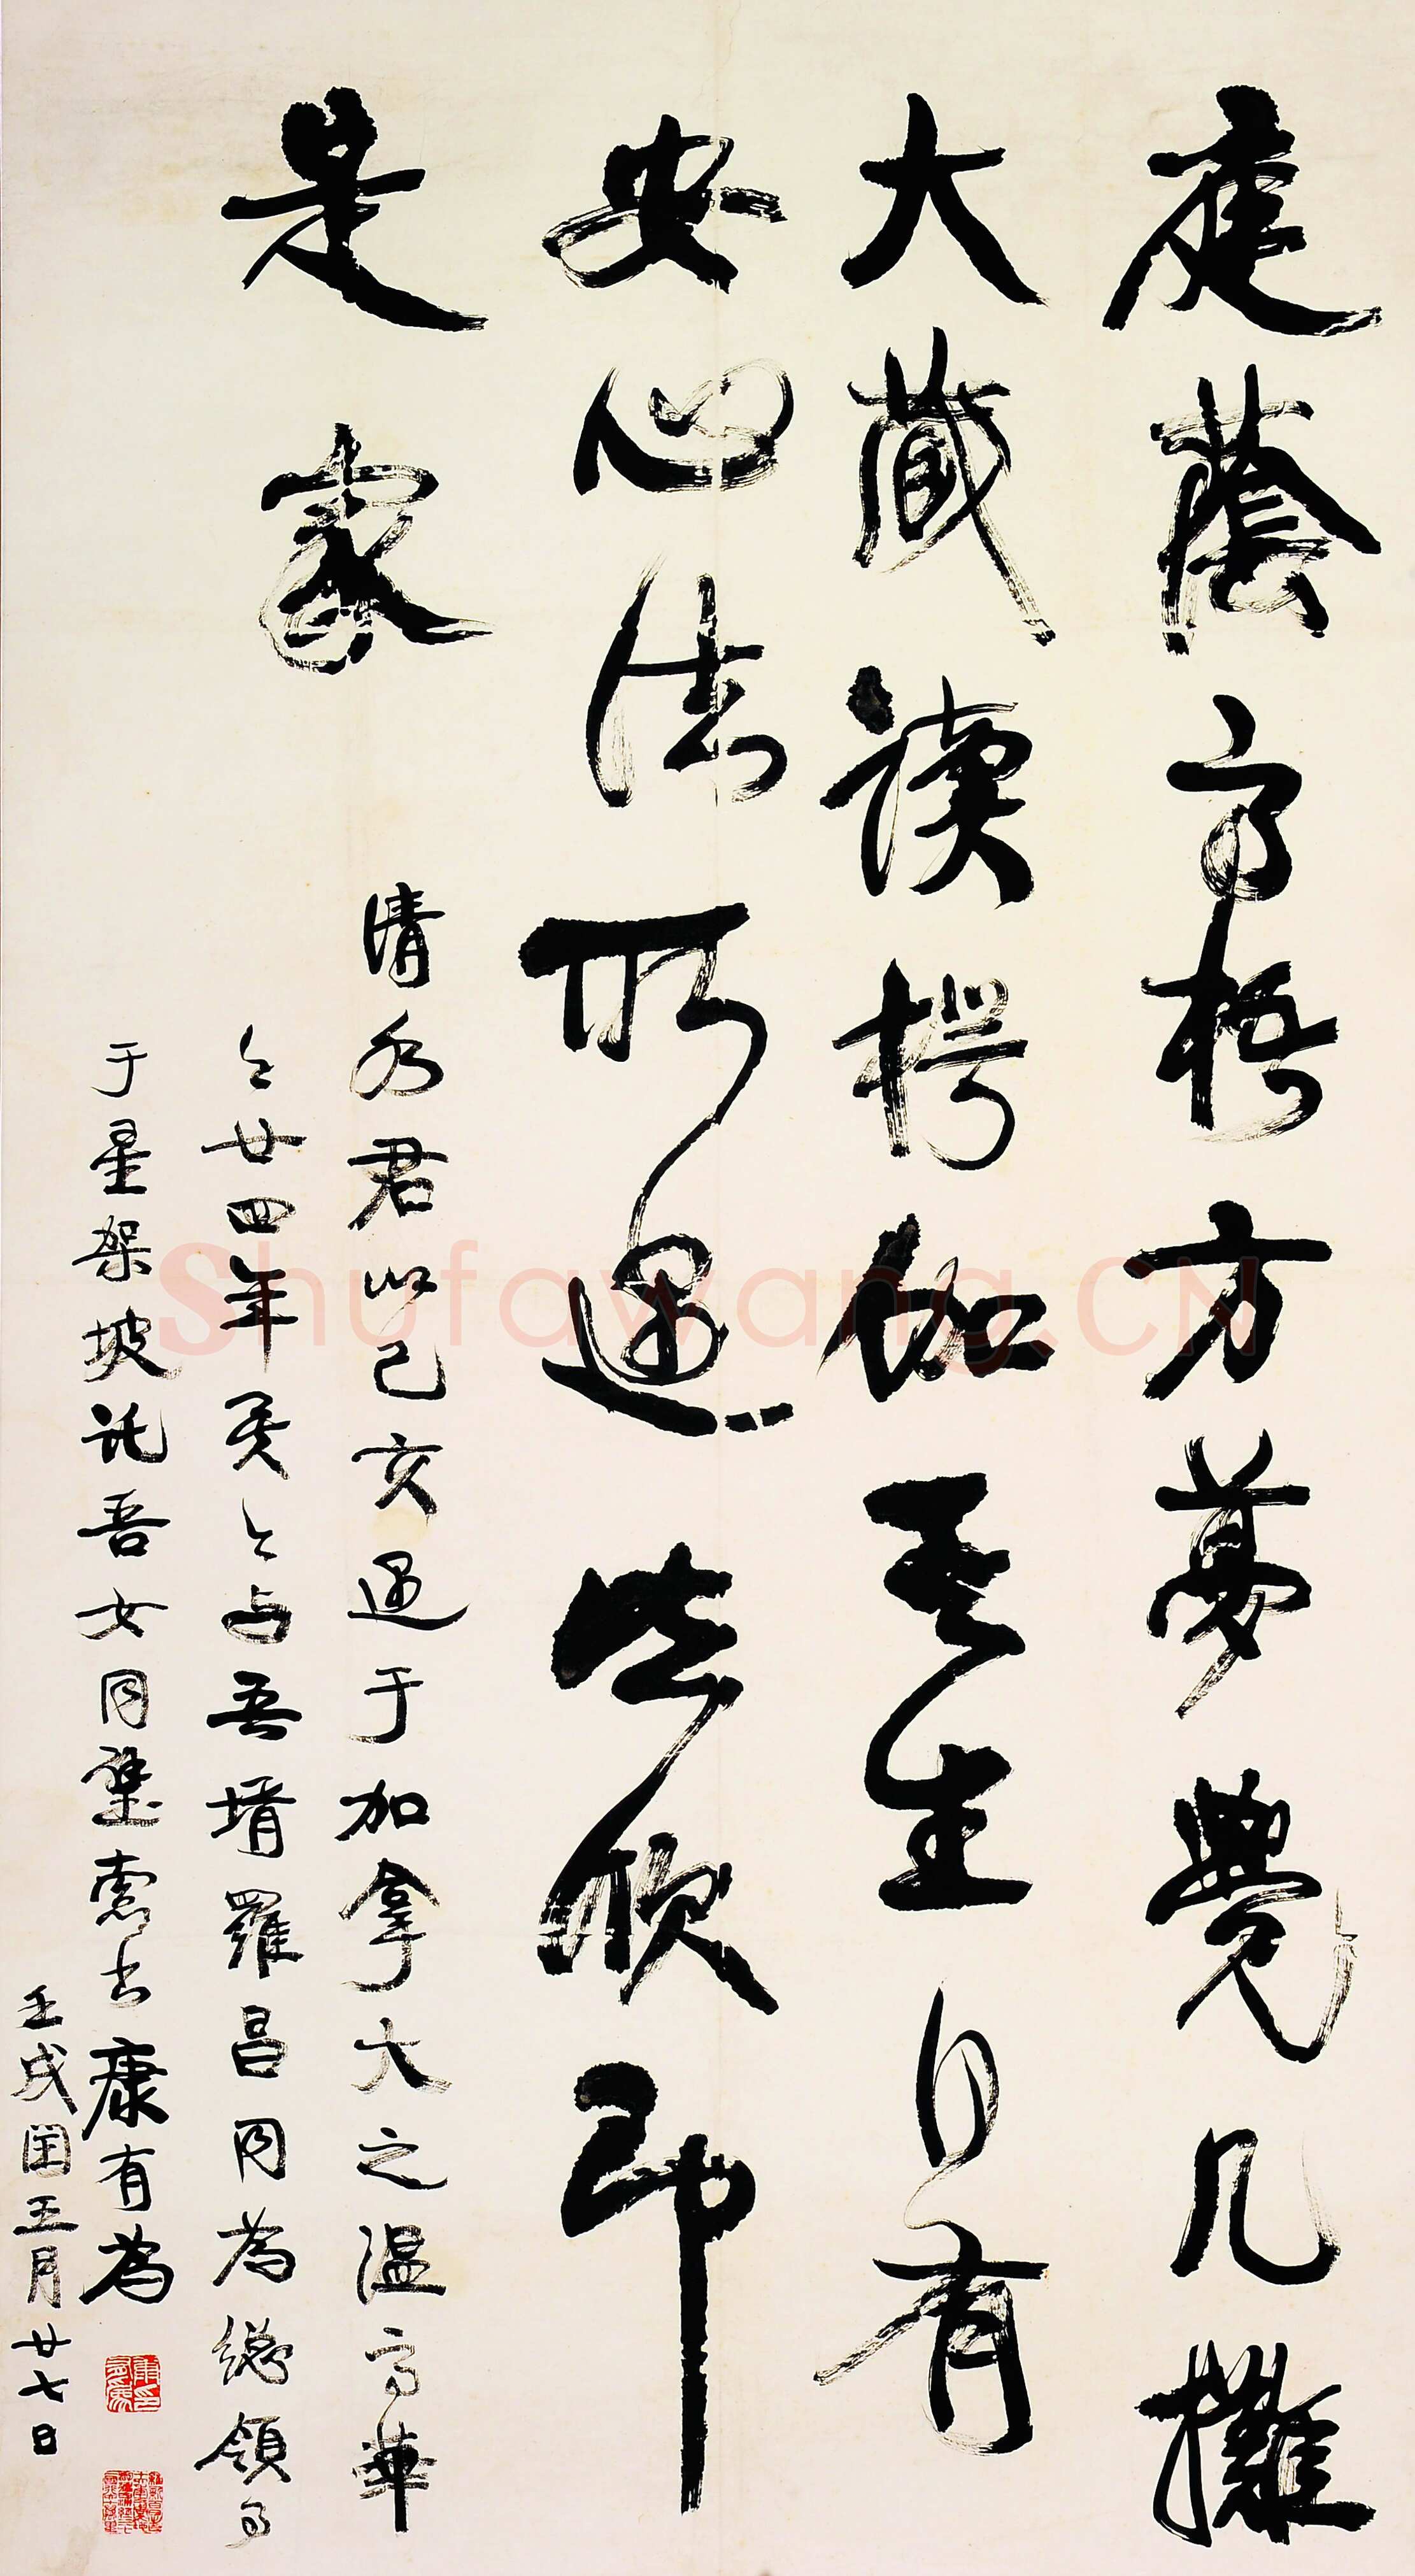 庭蔭高梧方夢覺几攤
大藏讀楞伽无生自有
安心法所遇皆欣即
是家
清水君以己亥遇于加拿大之温高華
今廿四年矣今与吾壻羅昌同為總領事
于星架坡託吾女同璧索書康有為
壬戌閏五月廿七日
Shufawang.CN